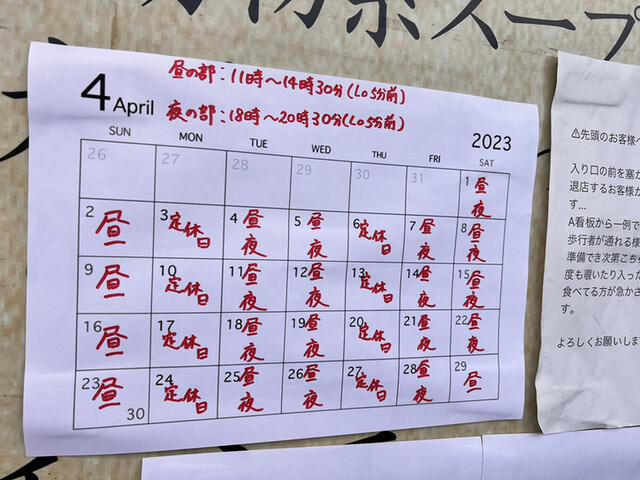 昼の部:11時〜14時30分(Lo5分前)
夜の部:18時〜20時30分(Lo5分前)
4 April
2023
SUN MON TUE WED THU FRI SAT
26 27 28 29 30 31 1 昼 夜
2 昼 3 定休日 4 昼 夜 5 昼 夜 6 定休日 7 昼 夜 8 昼 夜
9 昼 10 定休日 11 昼 夜 12 昼 夜 13 定休日 14 昼 夜 15 昼 夜
16 昼 17 定休日 18 昼 夜 19 昼 夜 20 定休日 21 昼 夜 22 昼 夜
23 昼 30 24 定休日 25 昼 夜 26 昼 夜 27 定休日 28 昼 夜 29 昼
⚠先頭のお客様へ
入り口の前を塞か
退店するお客様か
す...
A看板から一例で
歩行者が通れる様
準備でき次第こちら
度も覗いたり入った
食べてる方が急かさ
す。
よろしくお願いしま
スープ